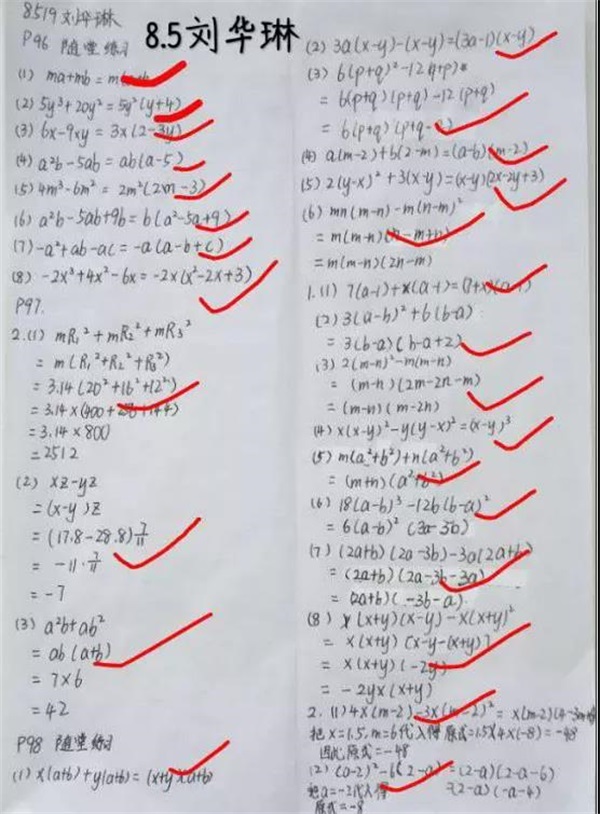 8519 刘华琳
8.5刘华琳
P96 随堂练习
(1) ma+mb = m
(2) 5y³+20y² = 5y²(y+4)
(3) 6x-9xy = 3x(2-3y)
(4) a²b-5ab = ab(a-5)
(5) 4m³-6m² = 2m²(2m-3)
(6) a²b-5ab+9b = b(a²-5a+9)
(7) -a²+ab-ac = -a(a-b+c)
(8) -2x³+4x²-6x = -2x(x²-2x+3)
P97.
2.(1) mR₁²+mR₂²+mR₃²
= m(R₁²+R₂²+R₃²)
= 3.14(20²+16²+12²)
= 3.14×(400+256+144)
= 3.14×800
= 2512
(2) xz-yz
= (x-y)z
= (17.8-28.8)7/11
= -11·7/11
= -7
(3) a²b+ab²
= ab(a+b)
= 7×6
= 42
P98 随堂练习
(1) x(a+b)+y(a+b) = (x+y)(a+b)
(2) 3a(x-y)-(x-y)=(3a-1)(x-y)
(3) 6(p+q)²-12(q+p)
= 6(p+q)(p+q)-12(p+q)
= 6(p+q)(p+q-2)
(4) a(m-2)+b(2-m)=(a-b)(m-2)
(5) 2(y-x)²+3(x-y)=(x-y)(2x-2y+3)
(6) mn(m-n)-m(n-m)²
= m(m-n)(n-m+n)
= m(m-n)(2n-m)
1.(1) 7(a-1)+x(a-1)=(7+x)(a-1)
(2) 3(a-b)²+6(b-a)
= 3(b-a)(b-a+2)
(3) 2(m-n)²-m(m-n)
= (m-n)(2m-2n-m)
= (m-n)(m-2n)
(4) x(x-y)²-y(y-x)²=(x-y)³
(5) m(a²+b²)+n(a²+b²)
= (m+n)(a²+b²)
(6) 18(a-b)³-12b(b-a)²
= 6(a-b)²(3a-5b)
(7) (2a+b)(2a-3b)-3a(2a+b)
= (2a+b)(2a-3b-3a)
= (2a+b)(-3b-a)
(8) x(x+y)(x-y)-x(x+y)²
= x(x+y)[x-y-(x+y)]
= x(x+y)(-2y)
= -2yx(x+y)
2.(1) 4x(m-2)-3x(m-2)² = x(m-2)(4-3m+
把x=1.5,m=6代入得 原式=1.5×4×(-8)=-48
因此,原式=-48
(2) (a-2)²-6(2-a) =(2-a)(2-a-6)
=(2-a)(-a-4)
把a=-2代入得
原式=-8